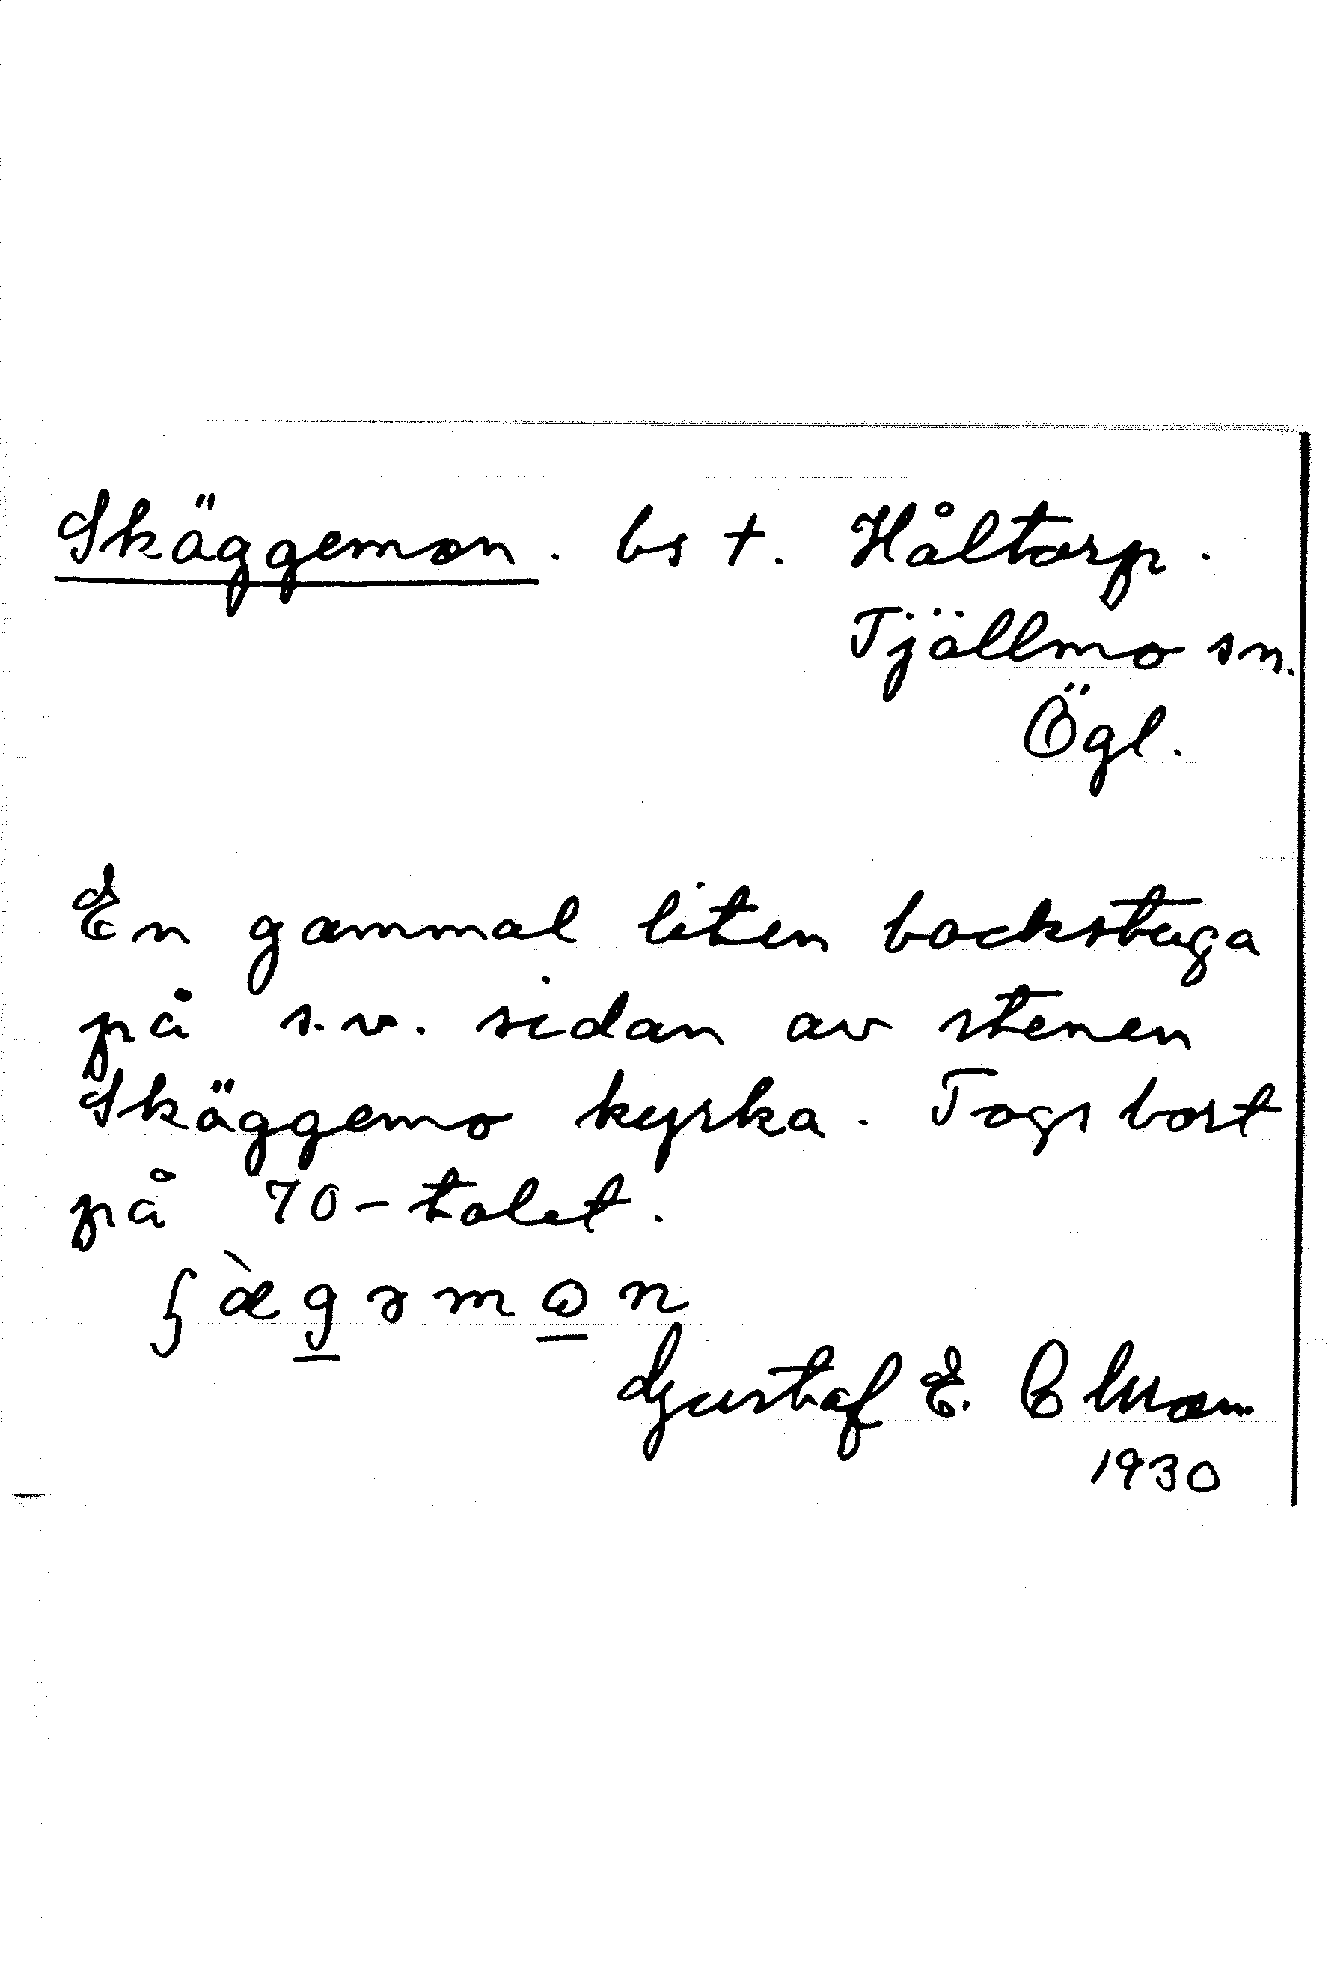 Skäggemon. bs †. Håltorp.
Tjällmo sn.
Ögl.
En gammal liten backstuga
på s.v. sidan av stenen
Skäggemo kyrka. Togs bort
på 70-talet.
Gustaf E.
1930